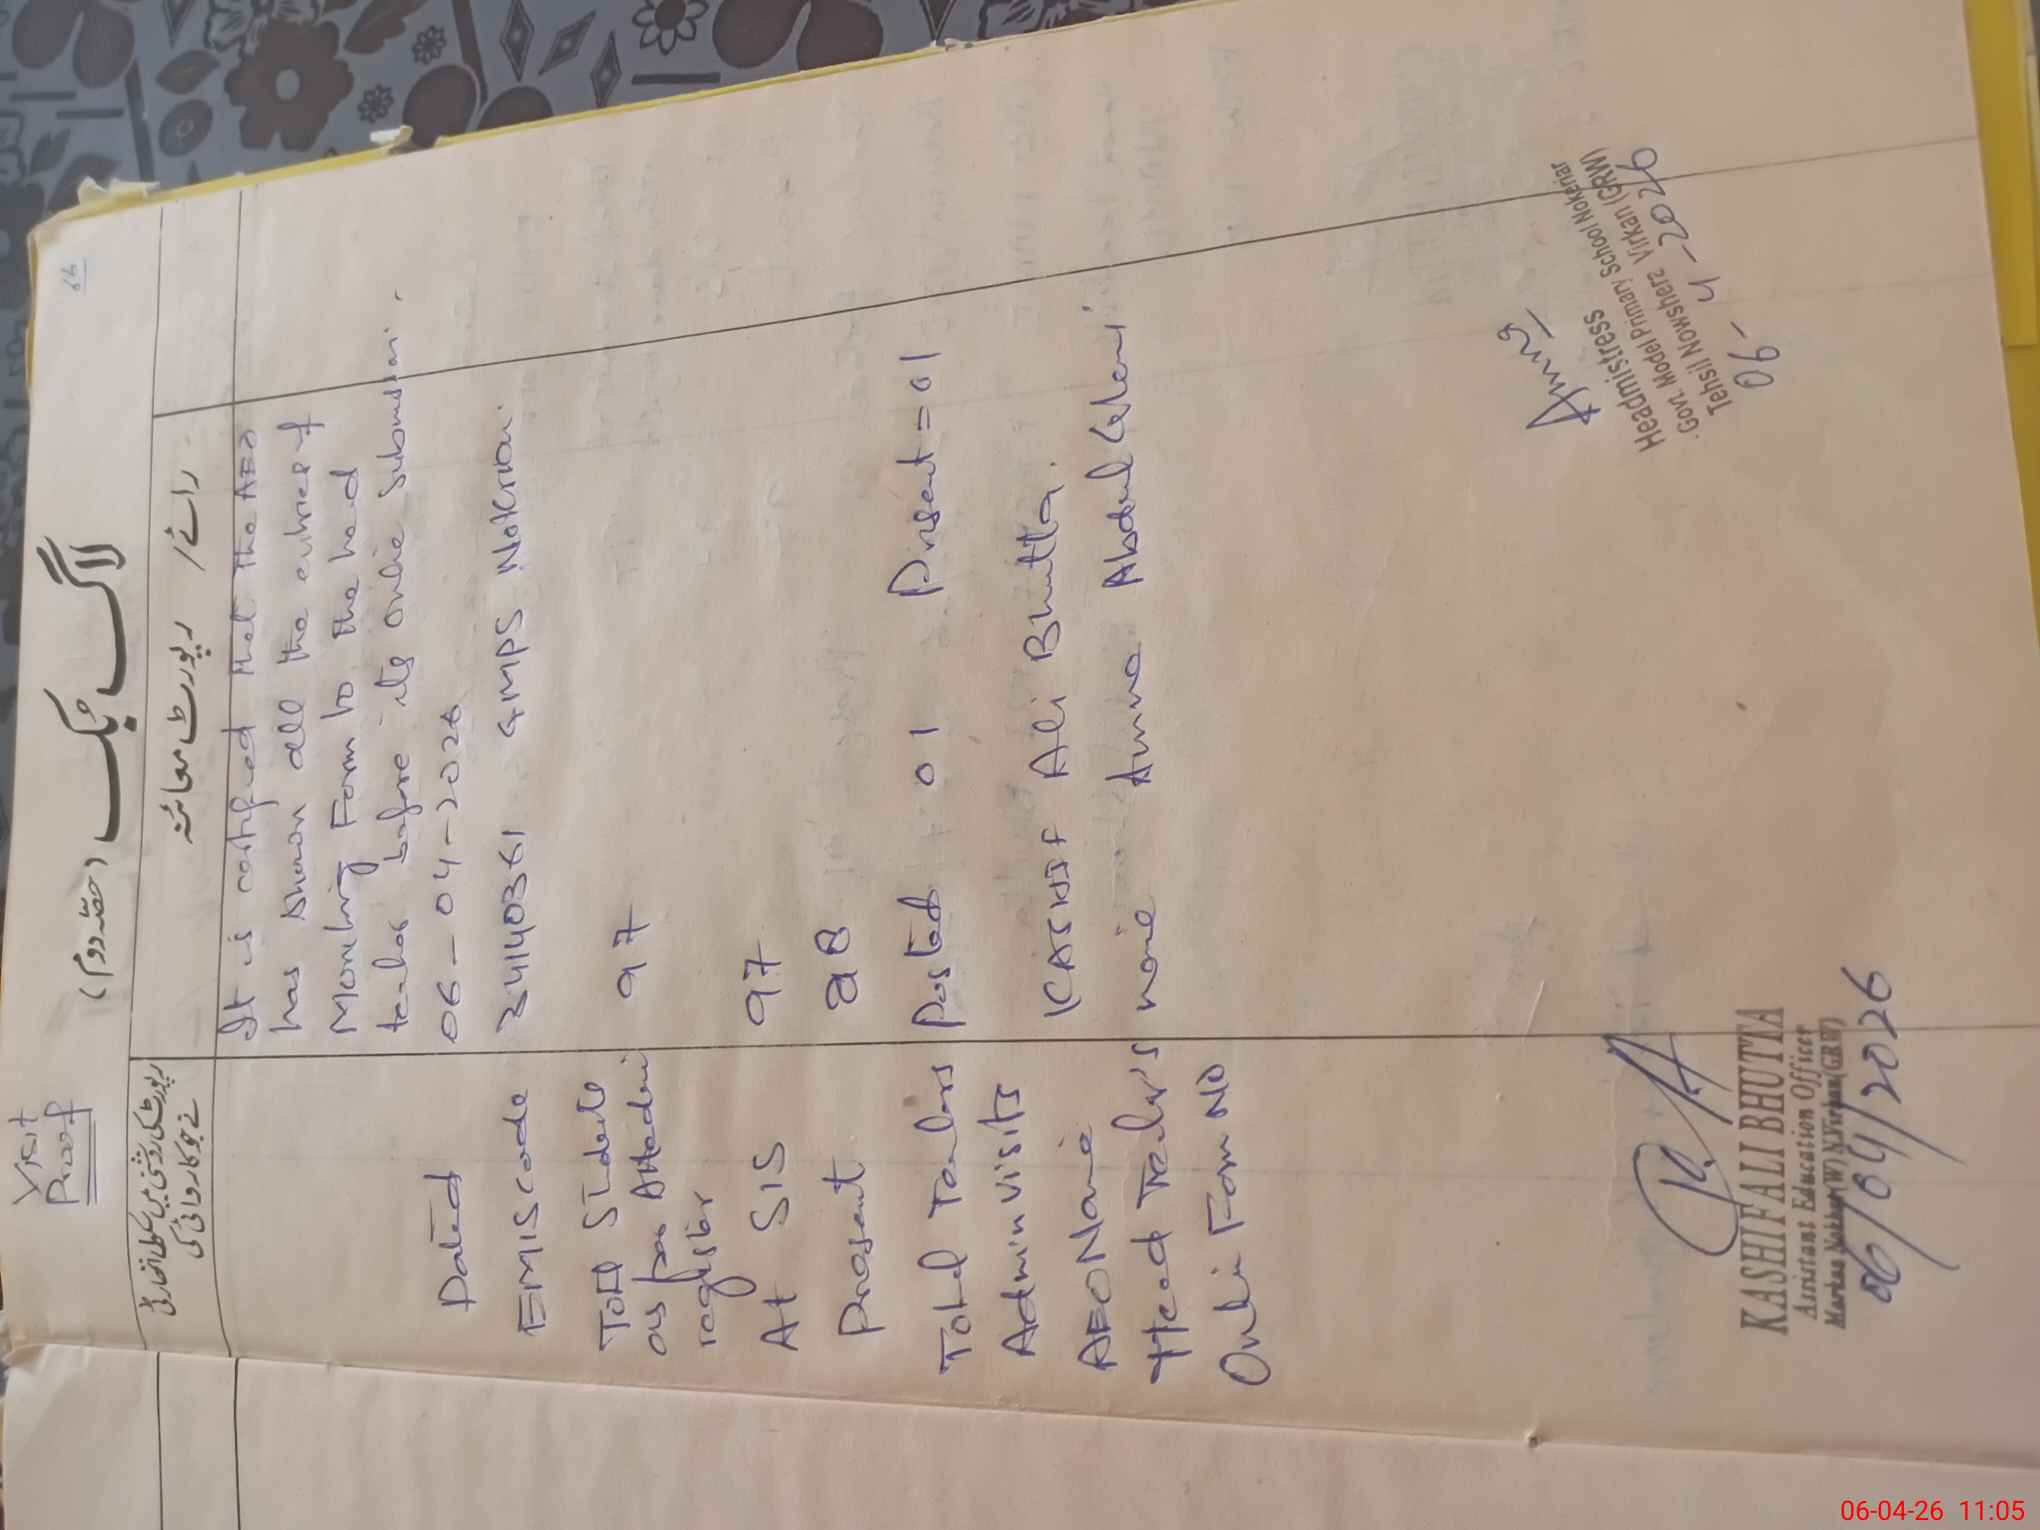 Visit
Proof
64
لاگ بک (حصّہ دوم)
رپورٹ کی روشنی میں سکول اتھارٹی
نے جو کاروائی کی
رائے / رپورٹ معائنہ
It is certified that the AEO
has shown all the entries of
Monitoring Form to the head
teacher before its online submission.
Dated 06-04-2026
EMIS code 34140361 GMPS Nokrian
Total Students
as per Attendance 97
register
At SIS 97
Present 88
Total Teachers Posted 01 Present=01
Admin visits
AEO Name KASHIF Ali Bhutta.
Head Teacher's name Amna Abdul Ghani
Online Form NO
Amna
Headmistress
Govt. Model Primary School Nokerian
Tehsil Nowshera Virkan (GRW)
06-4-2026
KASHIF ALI BHUTTA
Assistant Education Officer
Markaz Nokhar (W) N.Virkan (GRW)
06/04/2026
06-04-26 11:05